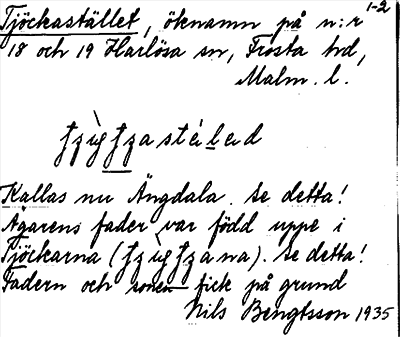 1-2
Tjöckastället, öknamn på n:r
18 och 19 Harlösa sn, Frosta hd,
Malm. l.
Kallas nu Ängdala. Se detta!
Ägarens fader var född uppe i
Tjöckarna. Se detta!
Fadern och sonen fick på grund
Nils Bengtsson 1935